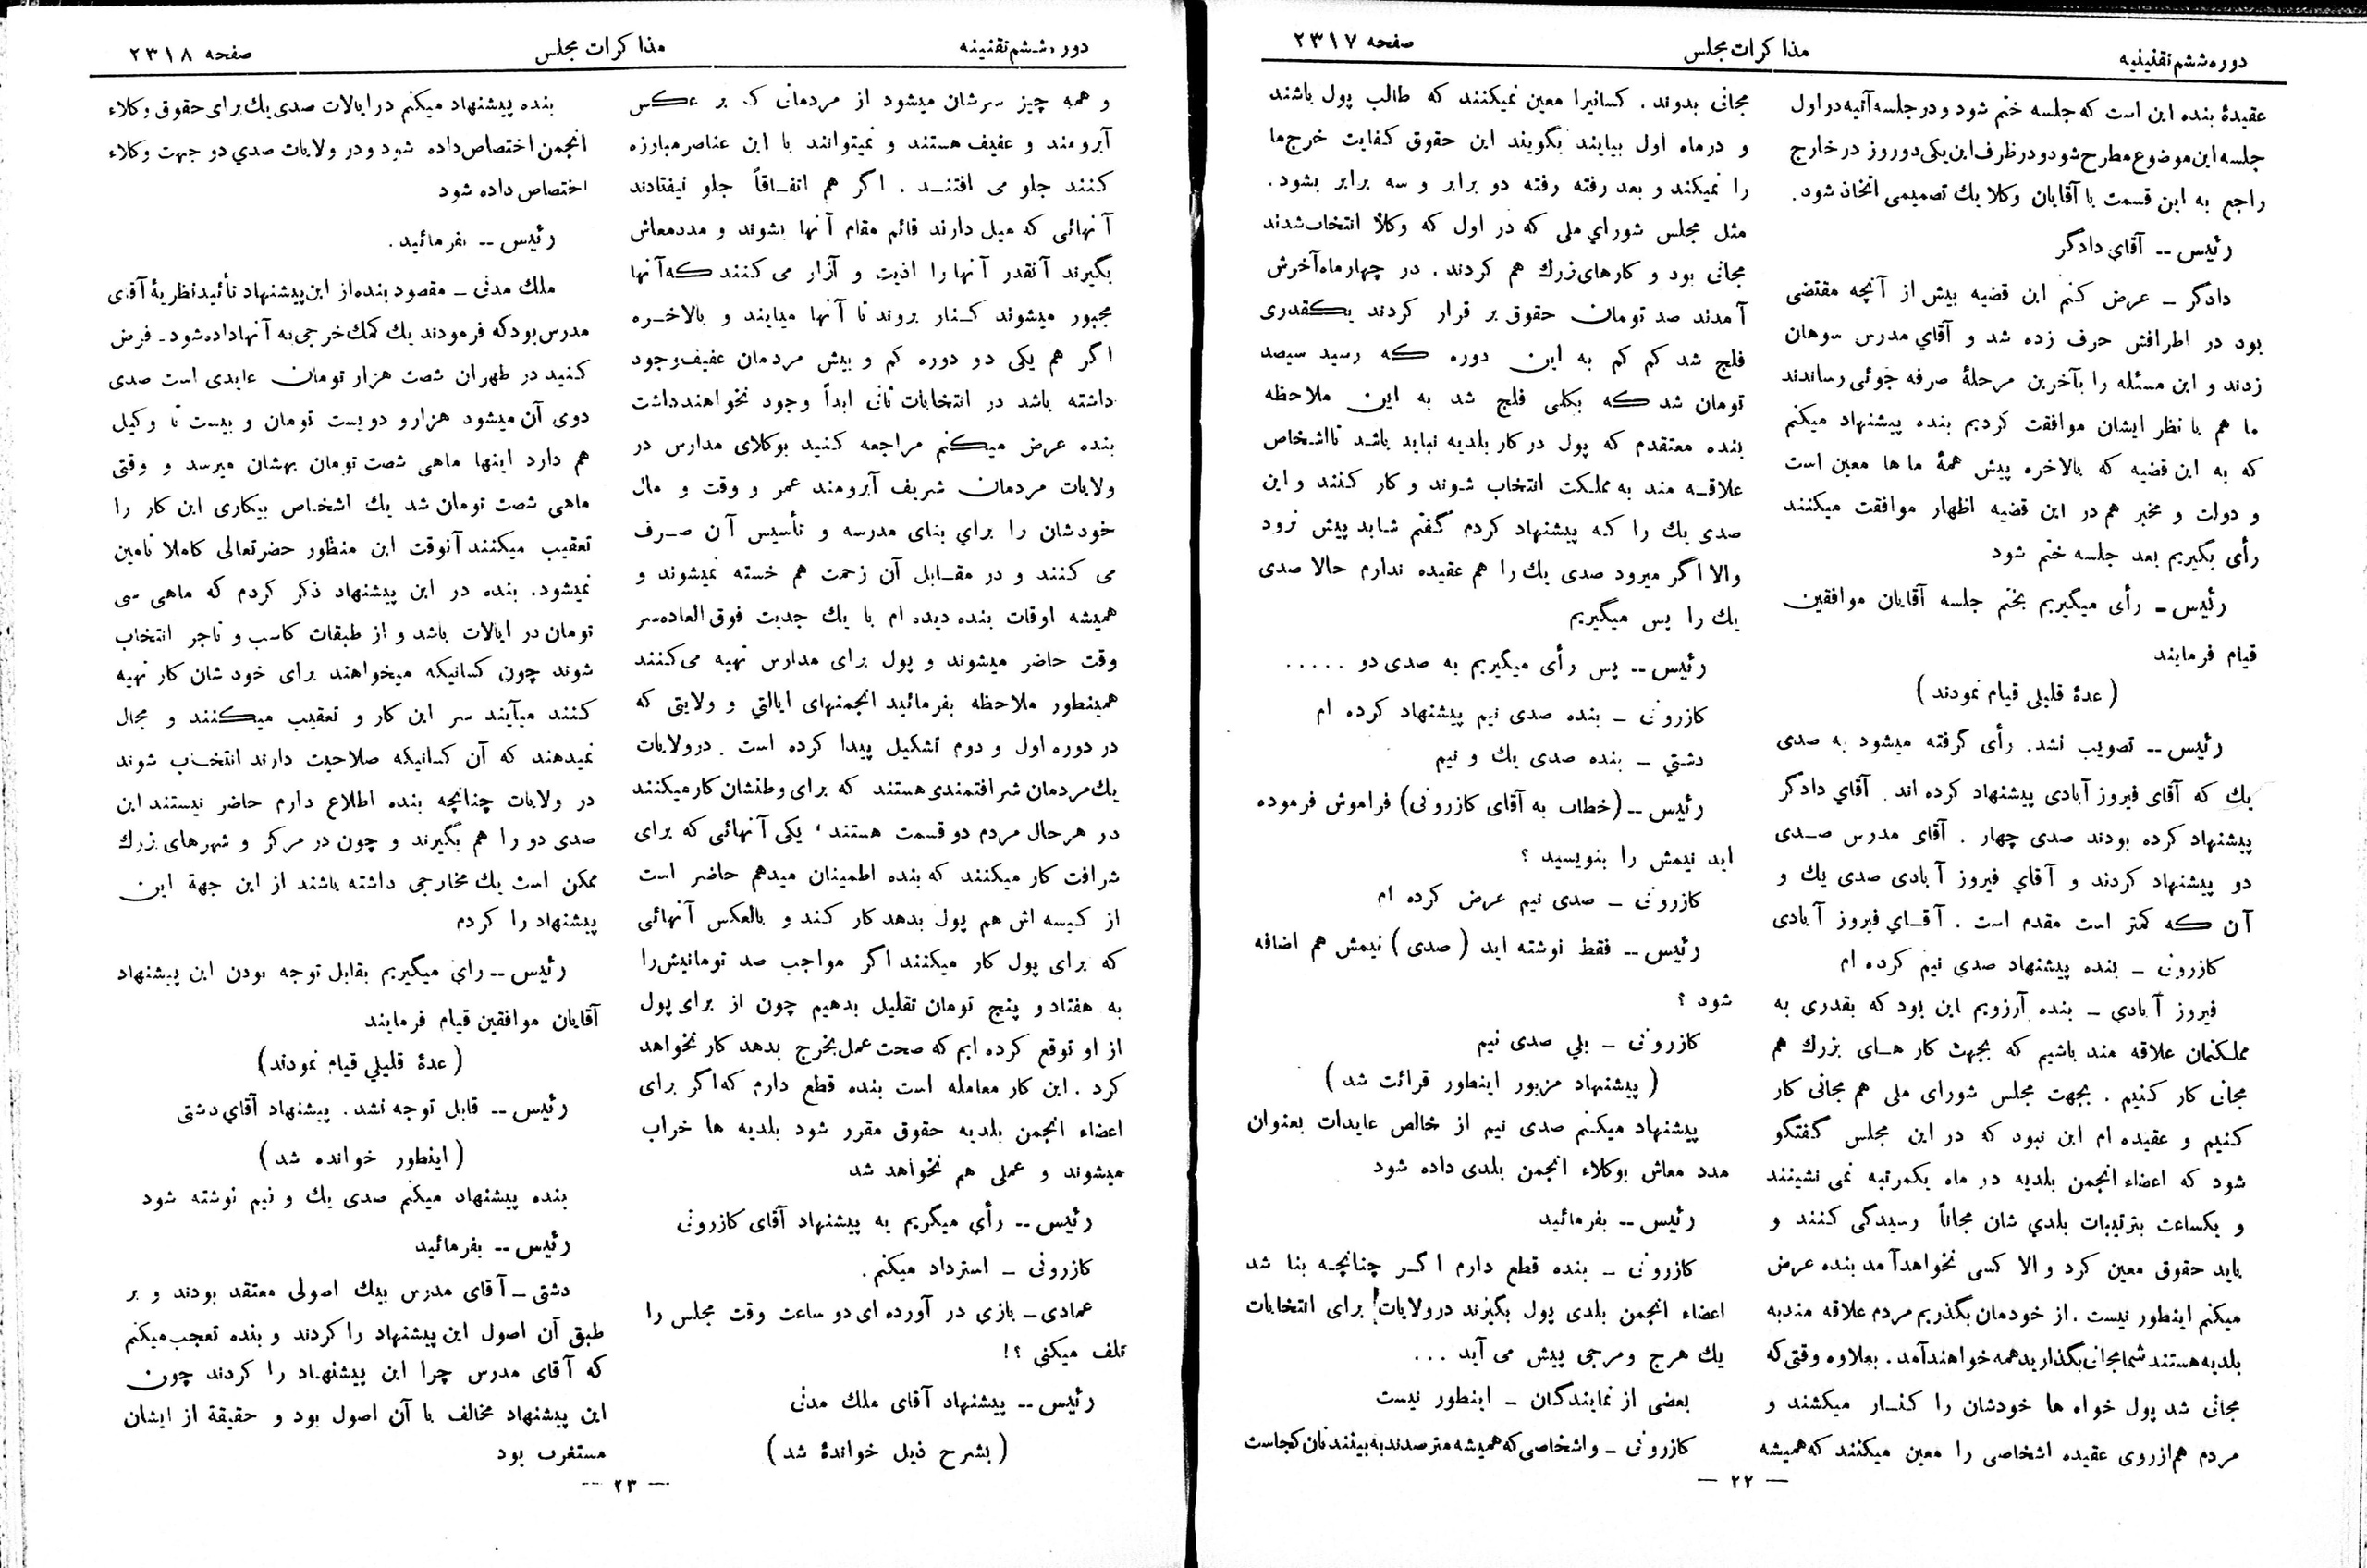 دوره ششم تقنینیه
مذاکرات مجلس
صفحه ۲۳۱۷
عقیدهٔ بنده این است که جلسه ختم شود و در جلسه آتیه در اول
جلسه این موضوع مطرح شود و در ظرف این یکی دو روز در خارج
راجع به این قسمت با آقایان وکلا یک تصمیمی اتخاذ شود.
رئیس -- آقای دادگر
دادگر - عرض کنم این قضیه بیش از آنچه مقتضی
بود در اطرافش حرف زده شد و آقای مدرس سوهان
زدند و این مسئله را بآخرین مرحلهٔ صرفه جوئی رساندند
ما هم با نظر ایشان موافقت کردیم بنده پیشنهاد میکنم
که به این قضیه که بالاخره پیش همهٔ ماها معین است
و دولت و مخبر هم در این قضیه اظهار موافقت میکنند
رأی بگیریم بعد جلسه ختم شود
رئیس - رأی میگیریم بختم جلسه آقایان موافقین
قیام فرمایند
(عدهٔ قلیلی قیام نمودند)
رئیس -- تصویب نشد. رأی گرفته میشود به صدی
یک که آقای فیروز آبادی پیشنهاد کرده اند. آقای دادگر
پیشنهاد کرده بودند صدی چهار . آقای مدرس صدی
دو پیشنهاد کردند و آقای فیروز آبادی صدی یک و
آن که کمتر است مقدم است . آقای فیروز آبادی
کازرونی - بنده پیشنهاد صدی نیم کرده ام
فیروز آبادی - بنده آرزویم این بود که بقدری به
مملکتمان علاقه مند باشیم که بجهت کارهای بزرگ هم
مجانی کار کنیم . بجهت مجلس شورای ملی هم مجانی کار
کنیم و عقیده ام این نبود که در این مجلس گفتگو
شود که اعضاء انجمن بلدیه در ماه یکمرتبه نمی نشینند
و یکساعت بترتیبات بلدی شان مجاناً رسیدگی کنند و
باید حقوق معین کرد و الا کسی نخواهد آمد بنده عرض
میکنم اینطور نیست . از خودمان بگذریم مردم علاقه مند به
بلدیه هستند شما مجانی بگذارید همه خواهند آمد. بعلاوه وقتی که
مجانی شد پول خواه ها خودشان را کنار میکشند و
مردم هم از روی عقیده اشخاصی را معین میکنند که همیشه
مجانی بدوند . کسانیرا معین نمیکنند که طالب پول باشند
و در ماه اول بیایند بگویند این حقوق کفایت خرج ما
را نمیکند و بعد رفته رفته دو برابر و سه برابر بشود.
مثل مجلس شورای ملی که در اول که وکلا انتخاب شدند
مجانی بود و کارهای بزرگ هم کردند . در چهار ماه آخرش
آمدند صد تومان حقوق بر قرار کردند یکقدری
فلج شد کم کم به این دوره که رسید سیصد
تومان شد که بکلی فلج شد به این ملاحظه
بنده معتقدم که پول در کار بلدیه نباید باشد تا اشخاص
علاقه مند به مملکت انتخاب شوند و کار کنند و این
صدی یک را که پیشنهاد کردم گفتم شاید پیش نرود
والا اگر میرود صدی یک را هم عقیده ندارم حالا صدی
یک را پس میگیریم
رئیس -- پس رأی میگیریم به صدی دو .....
کازرونی - بنده صدی نیم پیشنهاد کرده ام
دشتی - بنده صدی یک و نیم
رئیس -- (خطاب به آقای کازرونی) فراموش فرموده
اید نیمش را بنویسید ؟
کازرونی - صدی نیم عرض کرده ام
رئیس -- فقط نوشته اید (صدی) نیمش هم اضافه
شود ؟
کازرونی - بلی صدی نیم
(پیشنهاد مزبور اینطور قرائت شد)
پیشنهاد میکنم صدی نیم از خالص عایدات بعنوان
مدد معاش بوکلاء انجمن بلدی داده شود
رئیس -- بفرمائید
کازرونی - بنده قطع دارم اگر چنانچه بنا شد
اعضاء انجمن بلدی پول بگیرند در ولایات برای انتخابات
یک هرج و مرجی پیش می آید ...
بعضی از نمایندگان - اینطور نیست
کازرونی - و اشخاصی که همیشه مترصدند به بینند نان کجاست
— ۲۲ —
دوره ششم تقنینه
مذاکرات مجلس
صفحه ۲۳۱۸
و همه چیز سرشان میشود از مردمانی که بر عکس
آبرومند و عفیف هستند و نمیتوانند با این عناصر مبارزه
کنند جلو می افتند . اگر هم اتفاقاً جلو نیفتادند
آنهائی که میل دارند قائم مقام آنها بشوند و مدد معاش
بگیرند آنقدر آنها را اذیت و آزار می کنند که آنها
مجبور میشوند کنار بروند تا آنها میایند و بالاخره
اگر هم یکی دو دوره کم و بیش مردمان عفیف وجود
داشته باشد در انتخابات ثانی ابداً وجود نخواهند داشت
بنده عرض میکنم مراجعه کنید بوکلای مدارس در
ولایات مردمان شریف آبرومند عمر و وقت و مال
خودشان را برای بنای مدرسه و تأسیس آن صرف
می کنند و در مقابل آن زحمت هم خسته نمیشوند و
همیشه اوقات بنده دیده ام با یک جدیت فوق العاده سر
وقت حاضر میشوند و پول برای مدارس تهیه می کنند
همینطور ملاحظه بفرمائید انجمنهای ایالتی و ولایتی که
در دوره اول و دوم تشکیل پیدا کرده است . در ولایات
یک مردمان شرافتمندی هستند که برای وطنشان کار میکنند
در هر حال مردم دو قسمت هستند ، یکی آنهائی که برای
شرافت کار میکنند که بنده اطمینان میدهم حاضر است
از کیسه اش هم پول بدهد کار کند و بالعکس آنهائی
که برای پول کار میکنند اگر مواجب صد تومانیش را
به هفتاد و پنج تومان تقلیل بدهیم چون از برای پول
از او توقع کرده ایم که صحت عمل بخرج بدهد کار نخواهد
کرد . این کار معامله است بنده قطع دارم که اگر برای
اعضاء انجمن بلدیه حقوق مقرر شود بلدیه ها خراب
میشوند و عملی هم نخواهد شد
رئیس -- رأی میگریم به پیشنهاد آقای کازرونی
کازرونی - استرداد میکنم.
عمادی - بازی در آورده ای دو ساعت وقت مجلس را
تلف میکنی ؟!
رئیس -- پیشنهاد آقای ملک مدنی
(بشرح ذیل خواندهٔ شد)
بنده پیشنهاد میکنم در ایالات صدی یک برای حقوق وکلاء
انجمن اختصاص داده شود و در ولایات صدی دو جهت وکلاء
اختصاص داده شود
رئیس -- بفرمائید.
ملک مدنی - مقصود بنده از این پیشنهاد تأئید نظریهٔ آقای
مدرس بود که فرمودند یک کمک خرجی به آنها داده شود - فرض
کنید در طهران شصت هزار تومان عایدی است صدی
دوی آن میشود هزار و دویست تومان و بیست تا وکیل
هم دارد اینها ماهی شصت تومان بهشان میرسد و وقتی
ماهی شصت تومان شد یک اشخاص بیکاری این کار را
تعقیب میکنند آنوقت این منظور حضرتعالی کاملا تامین
نمیشود. بنده در این پیشنهاد ذکر کردم که ماهی سی
تومان در ایالات باشد و از طبقات کاسب و تاجر انتخاب
شوند چون کسانیکه میخواهند برای خود شان کار تهیه
کنند میآیند سر این کار و تعقیب میکنند و مجال
نمیدهند که آن کسانیکه صلاحیت دارند انتخاب شوند
در ولایات چنانچه بنده اطلاع دارم حاضر نیستند این
صدی دو را هم بگیرند و چون در مرکز و شهرهای بزرگ
ممکن است یک مخارجی داشته باشند از این جهة این
پیشنهاد را کردم
رئیس -- رای میگیریم بقابل توجه بودن این پیشنهاد
آقایان موافقین قیام فرمایند
(عدهٔ قلیلی قیام نمودند)
رئیس -- قابل توجه نشد. پیشنهاد آقای دشتی
(اینطور خوانده شد)
بنده پیشنهاد میکنم صدی یک و نیم نوشته شود
رئیس -- بفرمائید
دشتی - آقای مدرس بیک اصولی معتقد بودند و بر
طبق آن اصول این پیشنهاد را کردند و بنده تعجب میکنم
که آقای مدرس چرا این پیشنهاد را کردند چون
این پیشنهاد مخالف با آن اصول بود و حقیقة از ایشان
مستغرب بود
— ۲۳ —